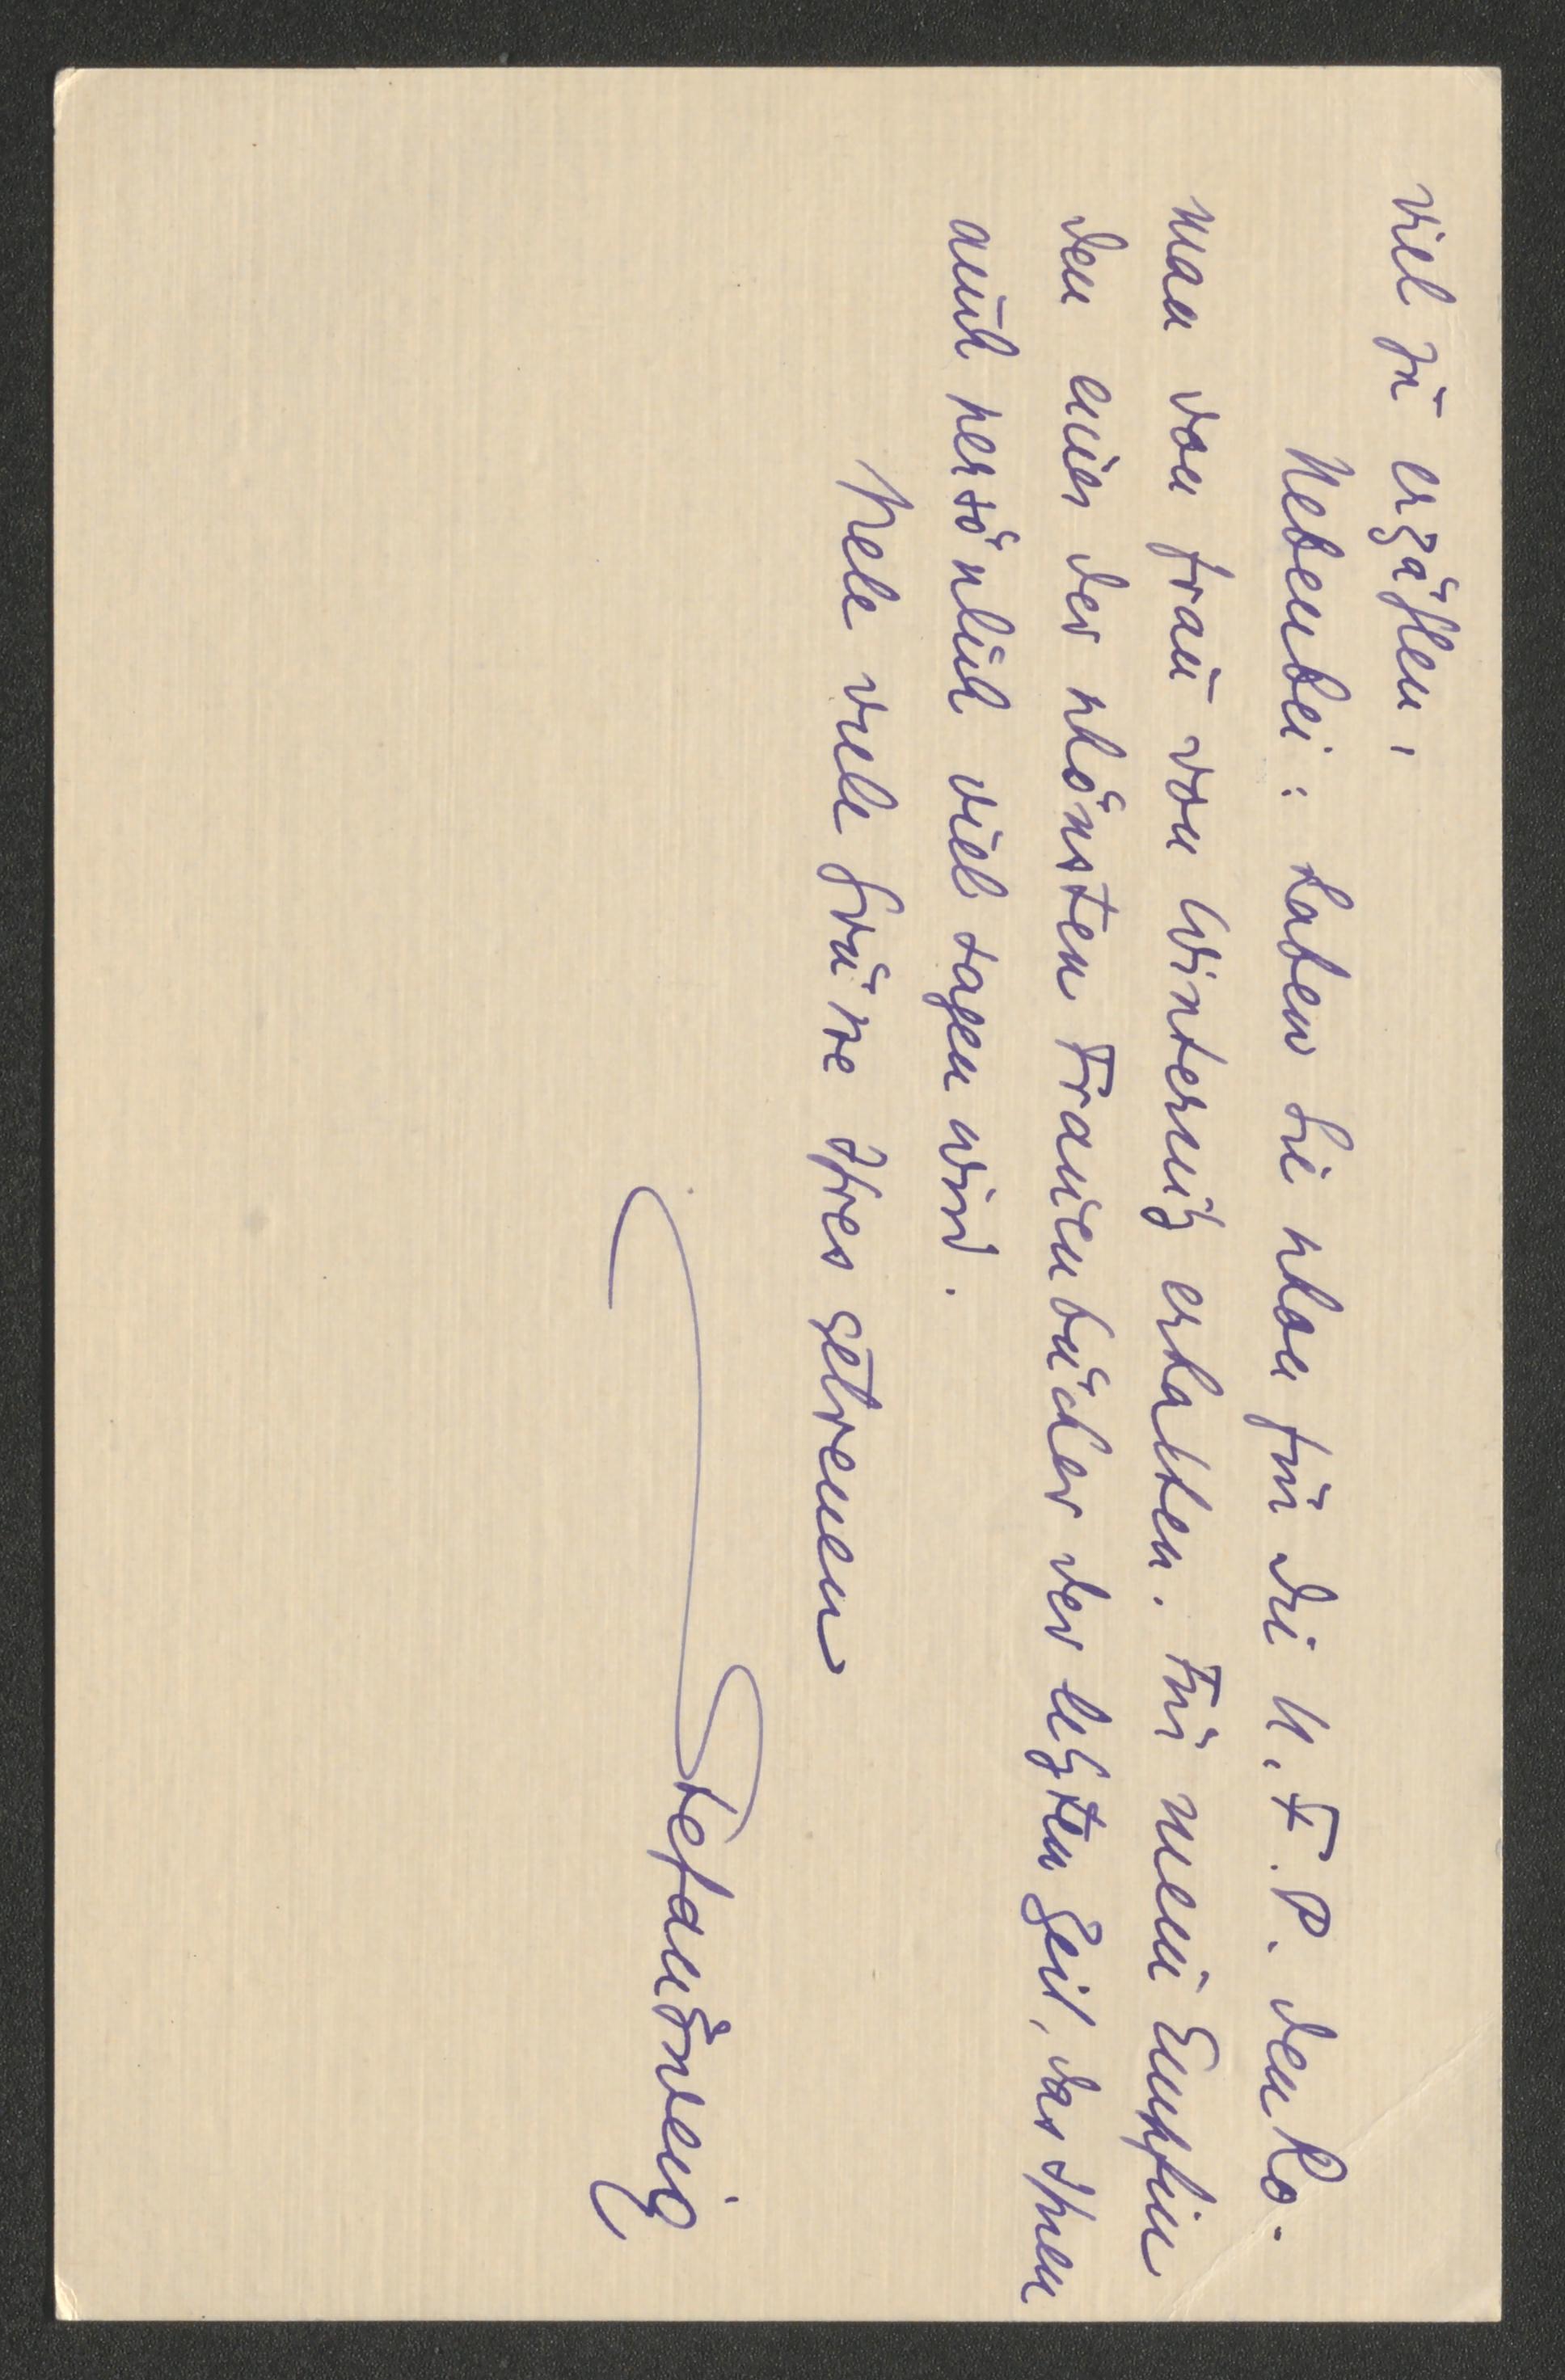 viel zu erzählen.
Nebenbei: haben Sie schon für die N.F.P. den Ro-
man von Frau von Winternitz erhalten. Für mein Empfin
den eines der schönsten Frauenbücher der letzten Zeit, das Ihnen
auch persönlich viel sagen wird.
Viele viele Grüsse Ihres getreuen
Stefan Zweig